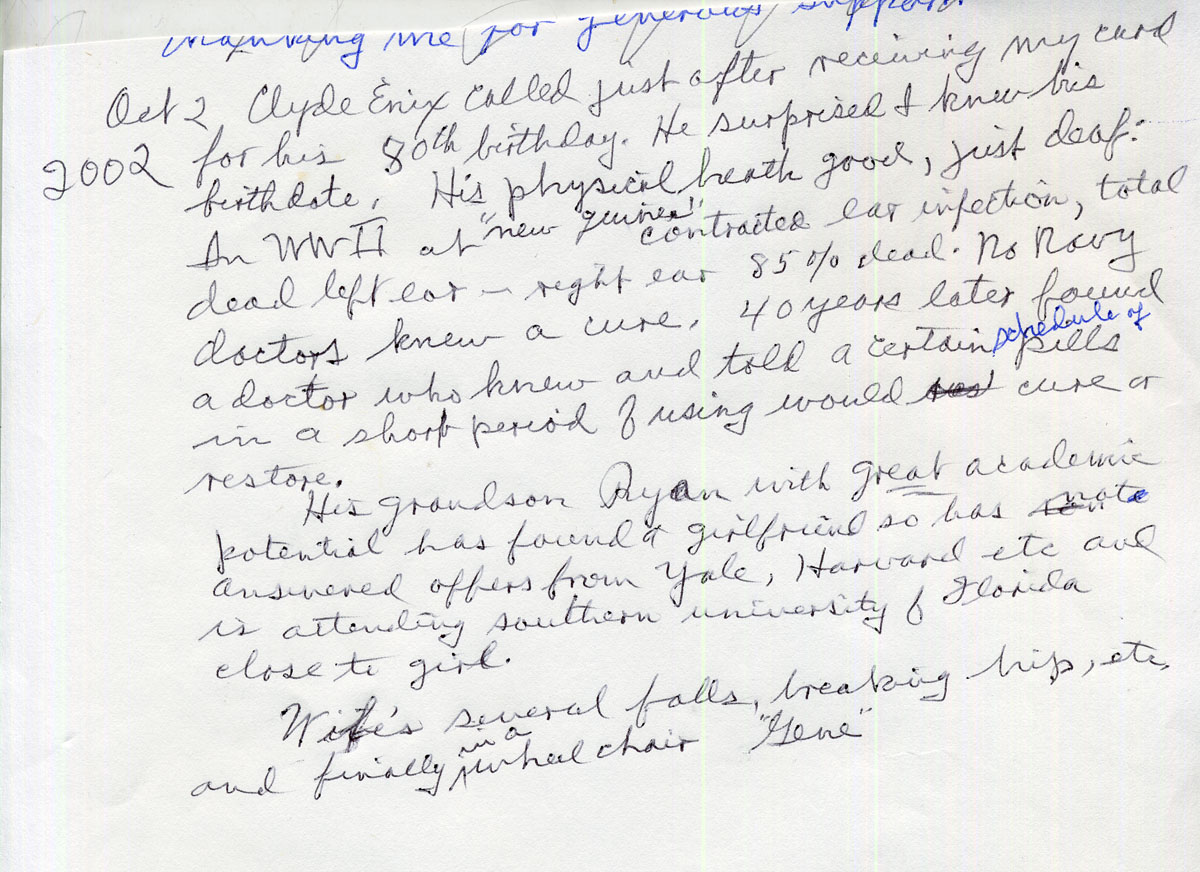 thanking me for generous support.
Oct 2 Clyde Enix called just after receiving my card
2002 for his 80th birthday. He surprised I knew his
birthdate. His physical heath good, just deaf:
In WWII at "new guinea" contracted ear infection, total
dead left ear - right ear 85% dead. No Navy
doctors knew a cure. 40 years later found
a doctor who knew and told a certain schedule of pills
in a short period of using would cure or
restore.
His grandson Ryan with great academic
potential has found a girlfriend so has not
answered offers from Yale, Harvard etc and
is attending southern university of Florida
close to girl.
Wife's several falls, breaking hip, etc,
and finally in a wheelchair "Gene"